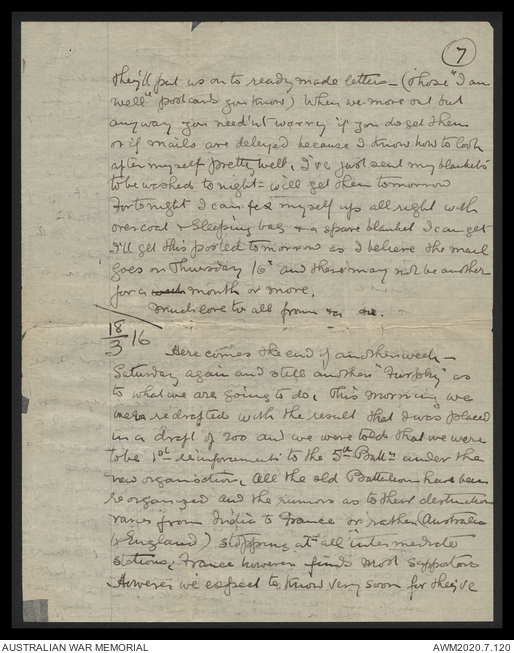 7
they'll put us on to ready made letters - (those "I am
well" postcards you know) When we move out but
anyway you need'nt worry if you do get them
or if mails are delayed because I know how to look
after myself pretty well, I've just sent my blankets
to be washed to night - will get them tomorrow
For to night I can fix myself up all right with
overcoat & Sleeping bag & a spare blanket I can get
I'll get this posted tomorrow as I believe the mail
goes on Thursday 16" and there may not be another
for a week month or more.
Much love to all from
18/3 16
Here comes the end of another week -
Saturday again and still another "Furphy" as
to what we are going to do, This morning we
were redrafted with the result that I was placed
in a draft of 200 and we were told that we were
to be 1st reinforcements to the 5th Battn under the
new organisation, All the old Battalions have been
reorganized and the rumors as to their destination
varies from India to France or rather (Australia
to England) stopping at "all intermediate
stations, France however finds most supporters
However we expect to know very soon for they've
AUSTRALIAN WAR MEMORIAL
AWM2020.7.120